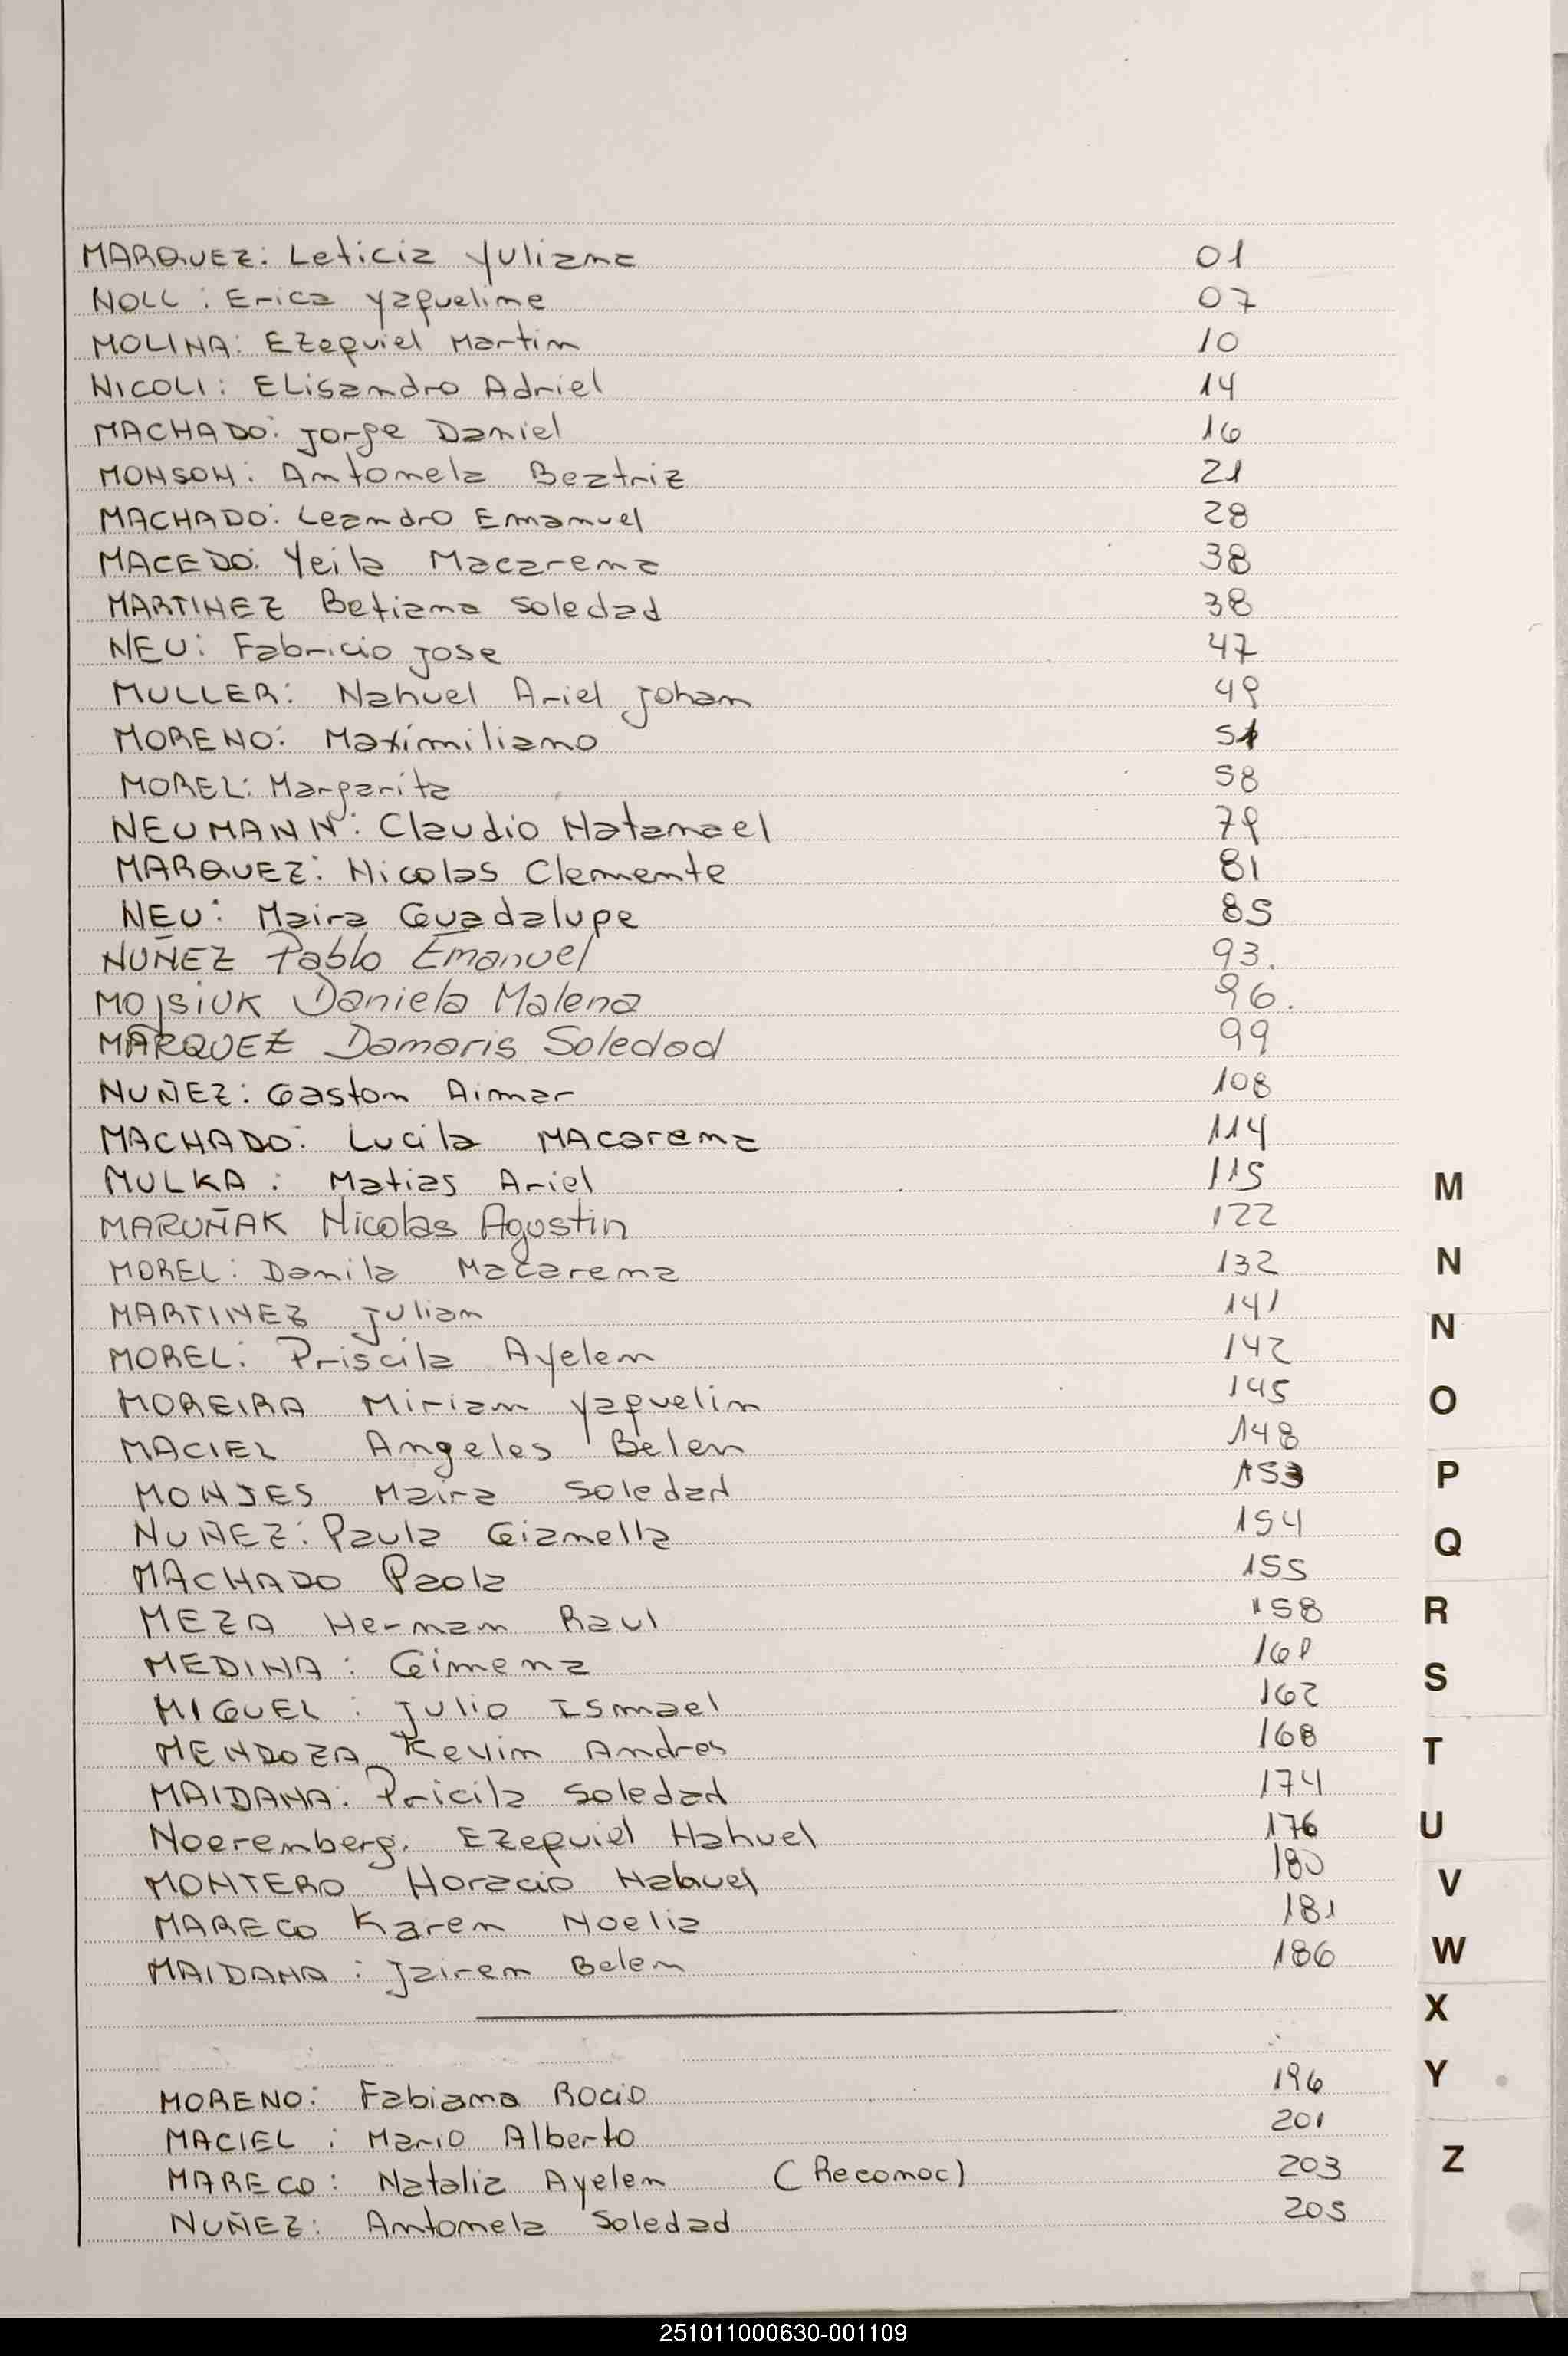 MARQUEZ: Leticia Yuliana 01
NOLL: Erica Yaqueline 07
MOLINA: Ezequiel Martin 10
NICOLI: Elisandro Adriel 14
MACHADO: Jorge Daniel 16
MONSON: Antonela Beatriz 21
MACHADO: Leandro Emanuel 28
MACEDO: Yeila Macarena 38
MARTINEZ Betiana Soledad 38
NEU: Fabricio Jose 47
MULLER: Nahuel Ariel Johan 49
MORENO: Maximiliano 51
MOREL: Margarita 58
NEUMANN: Claudio Natanael 79
MARQUEZ: Nicolas Clemente 81
NEU: Maira Guadalupe 85
NUÑEZ Pablo Emanuel 93.
MOJSIUK Daniela Malena 96.
MARQUEZ Damaris Soledad 99
NUÑEZ: Gaston Aimar 108
MACHADO: Lucila MAcarena 114
MULKA: Matias Ariel 115
MARUÑAK Nicolas Agustin 122
MOREL: Danila Macarena 132
MARTINEZ Julian 141
MOREL: Priscila Ayelen 142
MOREIRA Miriam Yaquelin 145
MACIEL Angeles Belen 148
MONJES Maira Soledad 153
NUÑEZ: Paula Gianella 154
MACHADO Paola 155
MEZA Hernan Raul 158
MEDINA: Gimena
MIGUEL: Julio Ismael 162
MENDOZA Kevin Andres 168
MAIDANA: Pricila Soledad 174
Noerenberg. Ezequiel Nahuel 176
MONTERO Horacio Nahuel 180
MARECO Karen Noelia 181
MAIDANA: Jairen Belen 186
MORENO: Fabiana Rocio 196
MACIEL: Mario Alberto 201
MARECO: Natalia Ayelen (Reconoc) 203
NUÑEZ: Antonela Soledad 205
M
N
N
O
P
Q
R
S
T
U
V
W
X
Y
Z
251011000630-001109